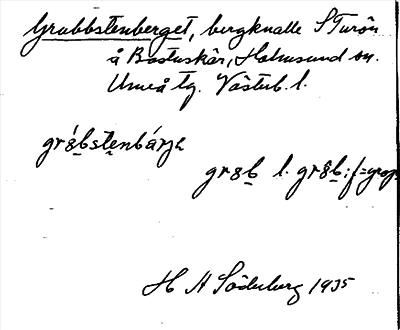 Grubbstenberget, bergknalle S Turön
å Bastuskär, Holmsund sn.
Umeå tg. Västerb. l.
gr8bstenbárjɛ
gr8b l. gr8b: f =
H A Söderberg 1935